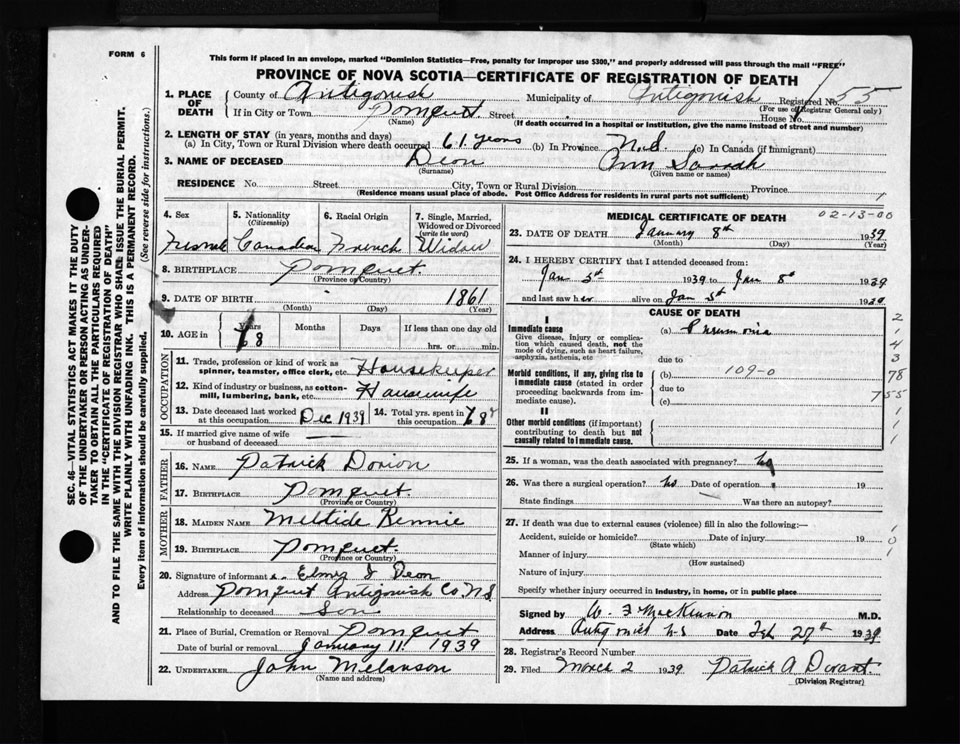 FORM 6
This form if placed in an envelope, marked "Dominion Statistics—Free, penalty for improper use $300," and properly addressed will pass through the mail "FREE"
PROVINCE OF NOVA SCOTIA—CERTIFICATE OF REGISTRATION OF DEATH
1. PLACE OF DEATH County of Antigonish Municipality of Antigonish Registered No. 55
(For use of Registrar General only)
If in City or Town Pomquet Street House No.
(Name) (If death occurred in a hospital or institution, give the name instead of street and number)
2. LENGTH OF STAY (in years, months and days)
(a) In City, Town or Rural Division where death occurred 61 years (b) In Province N.S. (c) In Canada (if immigrant)
3. NAME OF DECEASED Deon Ann Sarah
(Surname) (Given name or names)
RESIDENCE No. Street City, Town or Rural Division Province
(Residence means usual place of abode. Post Office Address for residents in rural parts not sufficient)
4. Sex 5. Nationality (Citizenship) 6. Racial Origin 7. Single, Married, Widowed or Divorced (write the word)
Female Canadian French Widow
8. BIRTHPLACE Pomquet.
(Province or Country)
9. DATE OF BIRTH 1861
(Month) (Day) (Year)
10. AGE in Years Months Days If less than one day old
68 hrs. or min.
OCCUPATION
11. Trade, profession or kind of work as spinner, teamster, office clerk, etc. Housekeeper
12. Kind of industry or business, as cotton-mill, lumbering, bank, etc. Housewife
13. Date deceased last worked at this occupation Dec 1939 14. Total yrs. spent in this occupation 68
15. If married give name of wife or husband of deceased
FATHER
16. NAME Patrick Dorion
17. BIRTHPLACE Pomquet.
(Province or Country)
MOTHER
18. MAIDEN NAME Meltide Rennie
19. BIRTHPLACE Pomquet.
(Province or Country)
20. Signature of informant Deon
Address Pomquet Antigonish Co N.S
Relationship to deceased Son
21. Place of Burial, Cremation or Removal Pomquet
Date of burial or removal January 11 1939
22. UNDERTAKER John Melanson
(Name and address)
MEDICAL CERTIFICATE OF DEATH
02-13-00
23. DATE OF DEATH January 8th 1939
(Month) (Day) (Year)
24. I HEREBY CERTIFY that I attended deceased from:
Jan 5th 1939 to Jan 8th 1939
and last saw her alive on Jan 5th 1939
CAUSE OF DEATH
I
Immediate cause (a) Pneumonia
Give disease, injury or complication which caused death, not the mode of dying, such as heart failure, asphyxia, asthenia, etc
due to
Morbid conditions, if any, giving rise to immediate cause (stated in order proceeding backwards from immediate cause). (b) 109-0
due to
(c)
II
Other morbid conditions (if important) contributing to death but not causally related to immediate cause.
2
1
4
3
78
755
1
1
25. If a woman, was the death associated with pregnancy? no
26. Was there a surgical operation? No Date of operation 19
State findings Was there an autopsy?
27. If death was due to external causes (violence) fill in also the following:—
Accident, suicide or homicide? Date of injury 19
(State which)
Manner of injury
(How sustained)
Nature of injury
Specify whether injury occurred in industry, in home, or in public place
Signed by W. F MacKinnon M.D.
Address Antigonish N.S Date Feb 27th 1939
28. Registrar's Record Number
29. Filed March 2 1939 Patrick A. Durant
(Division Registrar)
SEC. 46—VITAL STATISTICS ACT MAKES IT THE DUTY
OF THE UNDERTAKER OR PERSON ACTING AS UNDER-
TAKER TO OBTAIN ALL THE PARTICULARS REQUIRED
IN THE "CERTIFICATE OF REGISTRATION OF DEATH"
AND TO FILE THE SAME WITH THE DIVISION REGISTRAR WHO SHALL ISSUE THE BURIAL PERMIT.
WRITE PLAINLY WITH UNFADING INK. THIS IS A PERMANENT RECORD.
Every item of information should be carefully supplied. (See reverse side for instructions.)